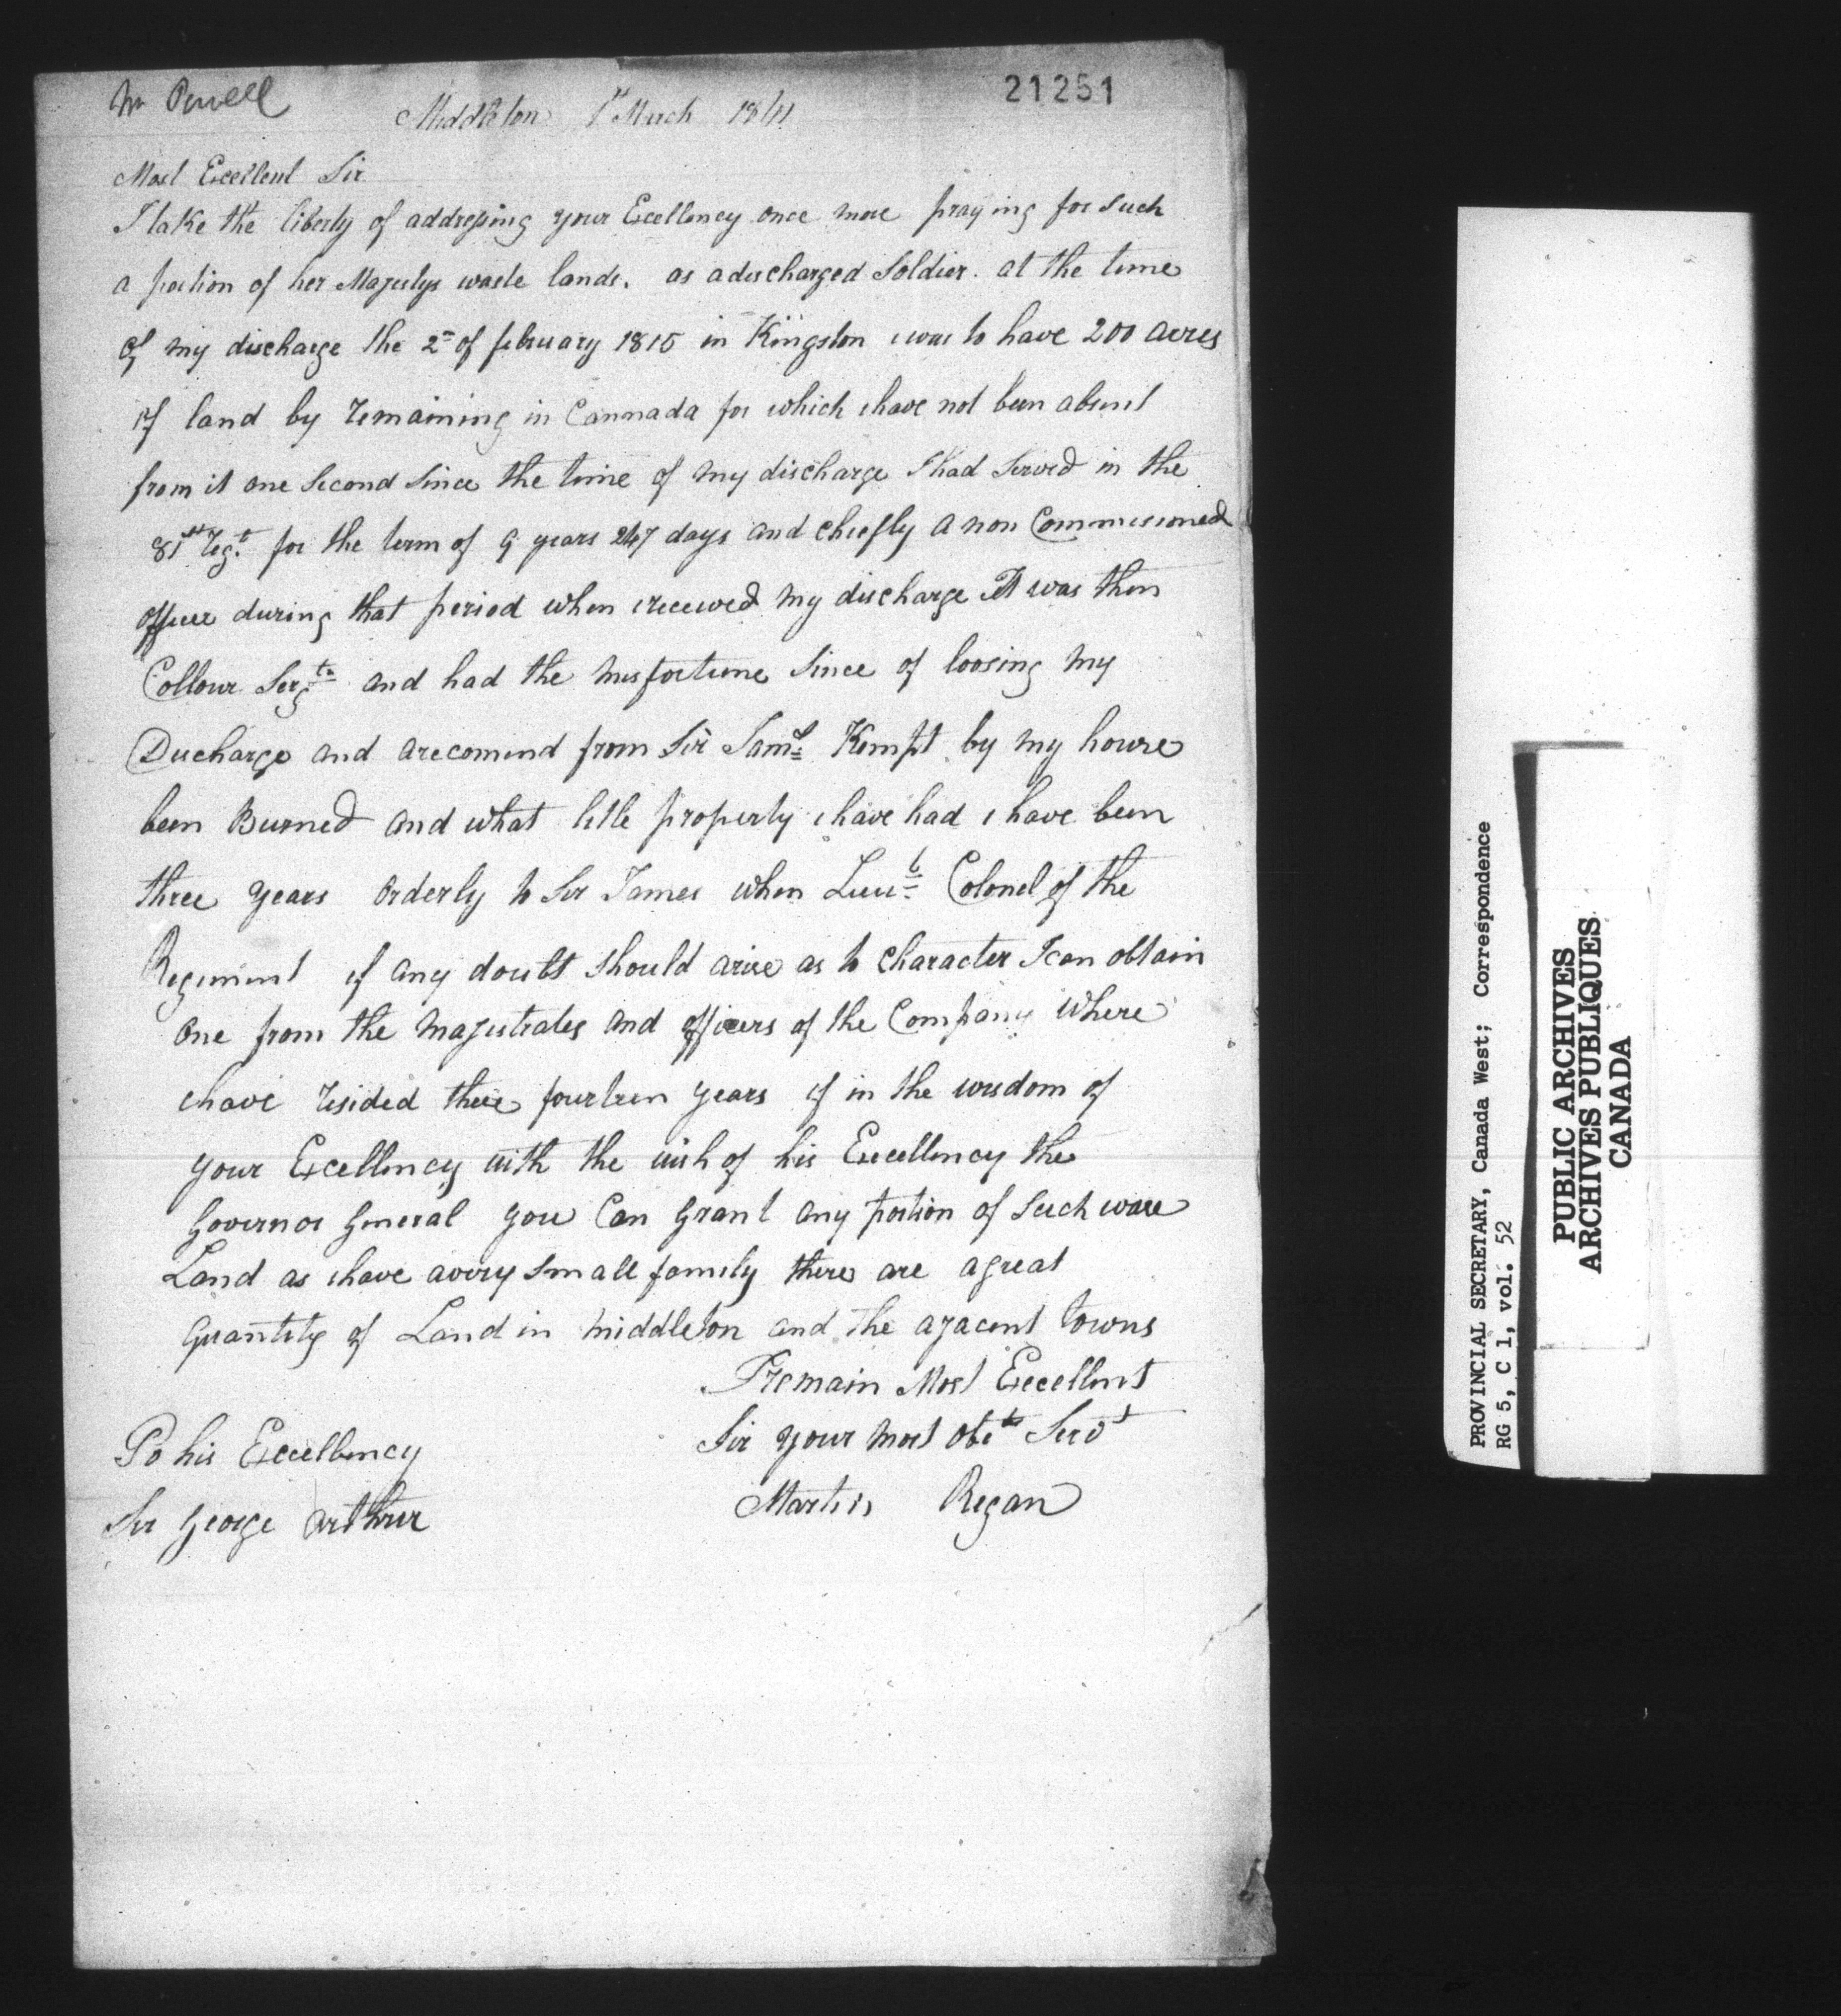 Mr Powell
21251
Middleton 1st March 1841
Most Excellent Sir
I take the liberty of addressing your Excellency once more praying for such
a portion of her Majestys waste lands. as a discharged Soldier. at the time
of my discharge the 2d of february 1815 in Kingston i was to have 200 acres
of land by remaining in Cannada for which i have not been absent
from it one Second Since the time of my discharge I had Served in the
81st regt for the term of 9 years 247 days and chiefly a non Commissioned
officer during that period when i received my discharge It was then
Collour Sergt and had the misfortune Since of loosing my
Discharge and a recomend from Sir Saml Kempt by my house
been Burned and what litle property i have had i have been
three years orderly to Sir James when Lieut Colonel of the
Regiment if any doubt should arise as to Character I can obtain
one from the Magistrates and officers of the Company where
i have resided these fourteen years if in the wisdom of
your Excellency with the wish of his Excellency the
Governor General you Can grant any portion of Such
Land as i have a very Small family there are a great
quantity of Land in Middleton and the ajacent towns
I remain Most Excellent
Sir your most obt Servt
Martin Regan
To his Excellency
Sir George Arthur
PROVINCIAL SECRETARY, Canada West; Correspondence
RG 5, C 1, vol. 52
PUBLIC ARCHIVES
ARCHIVES PUBLIQUES
CANADA